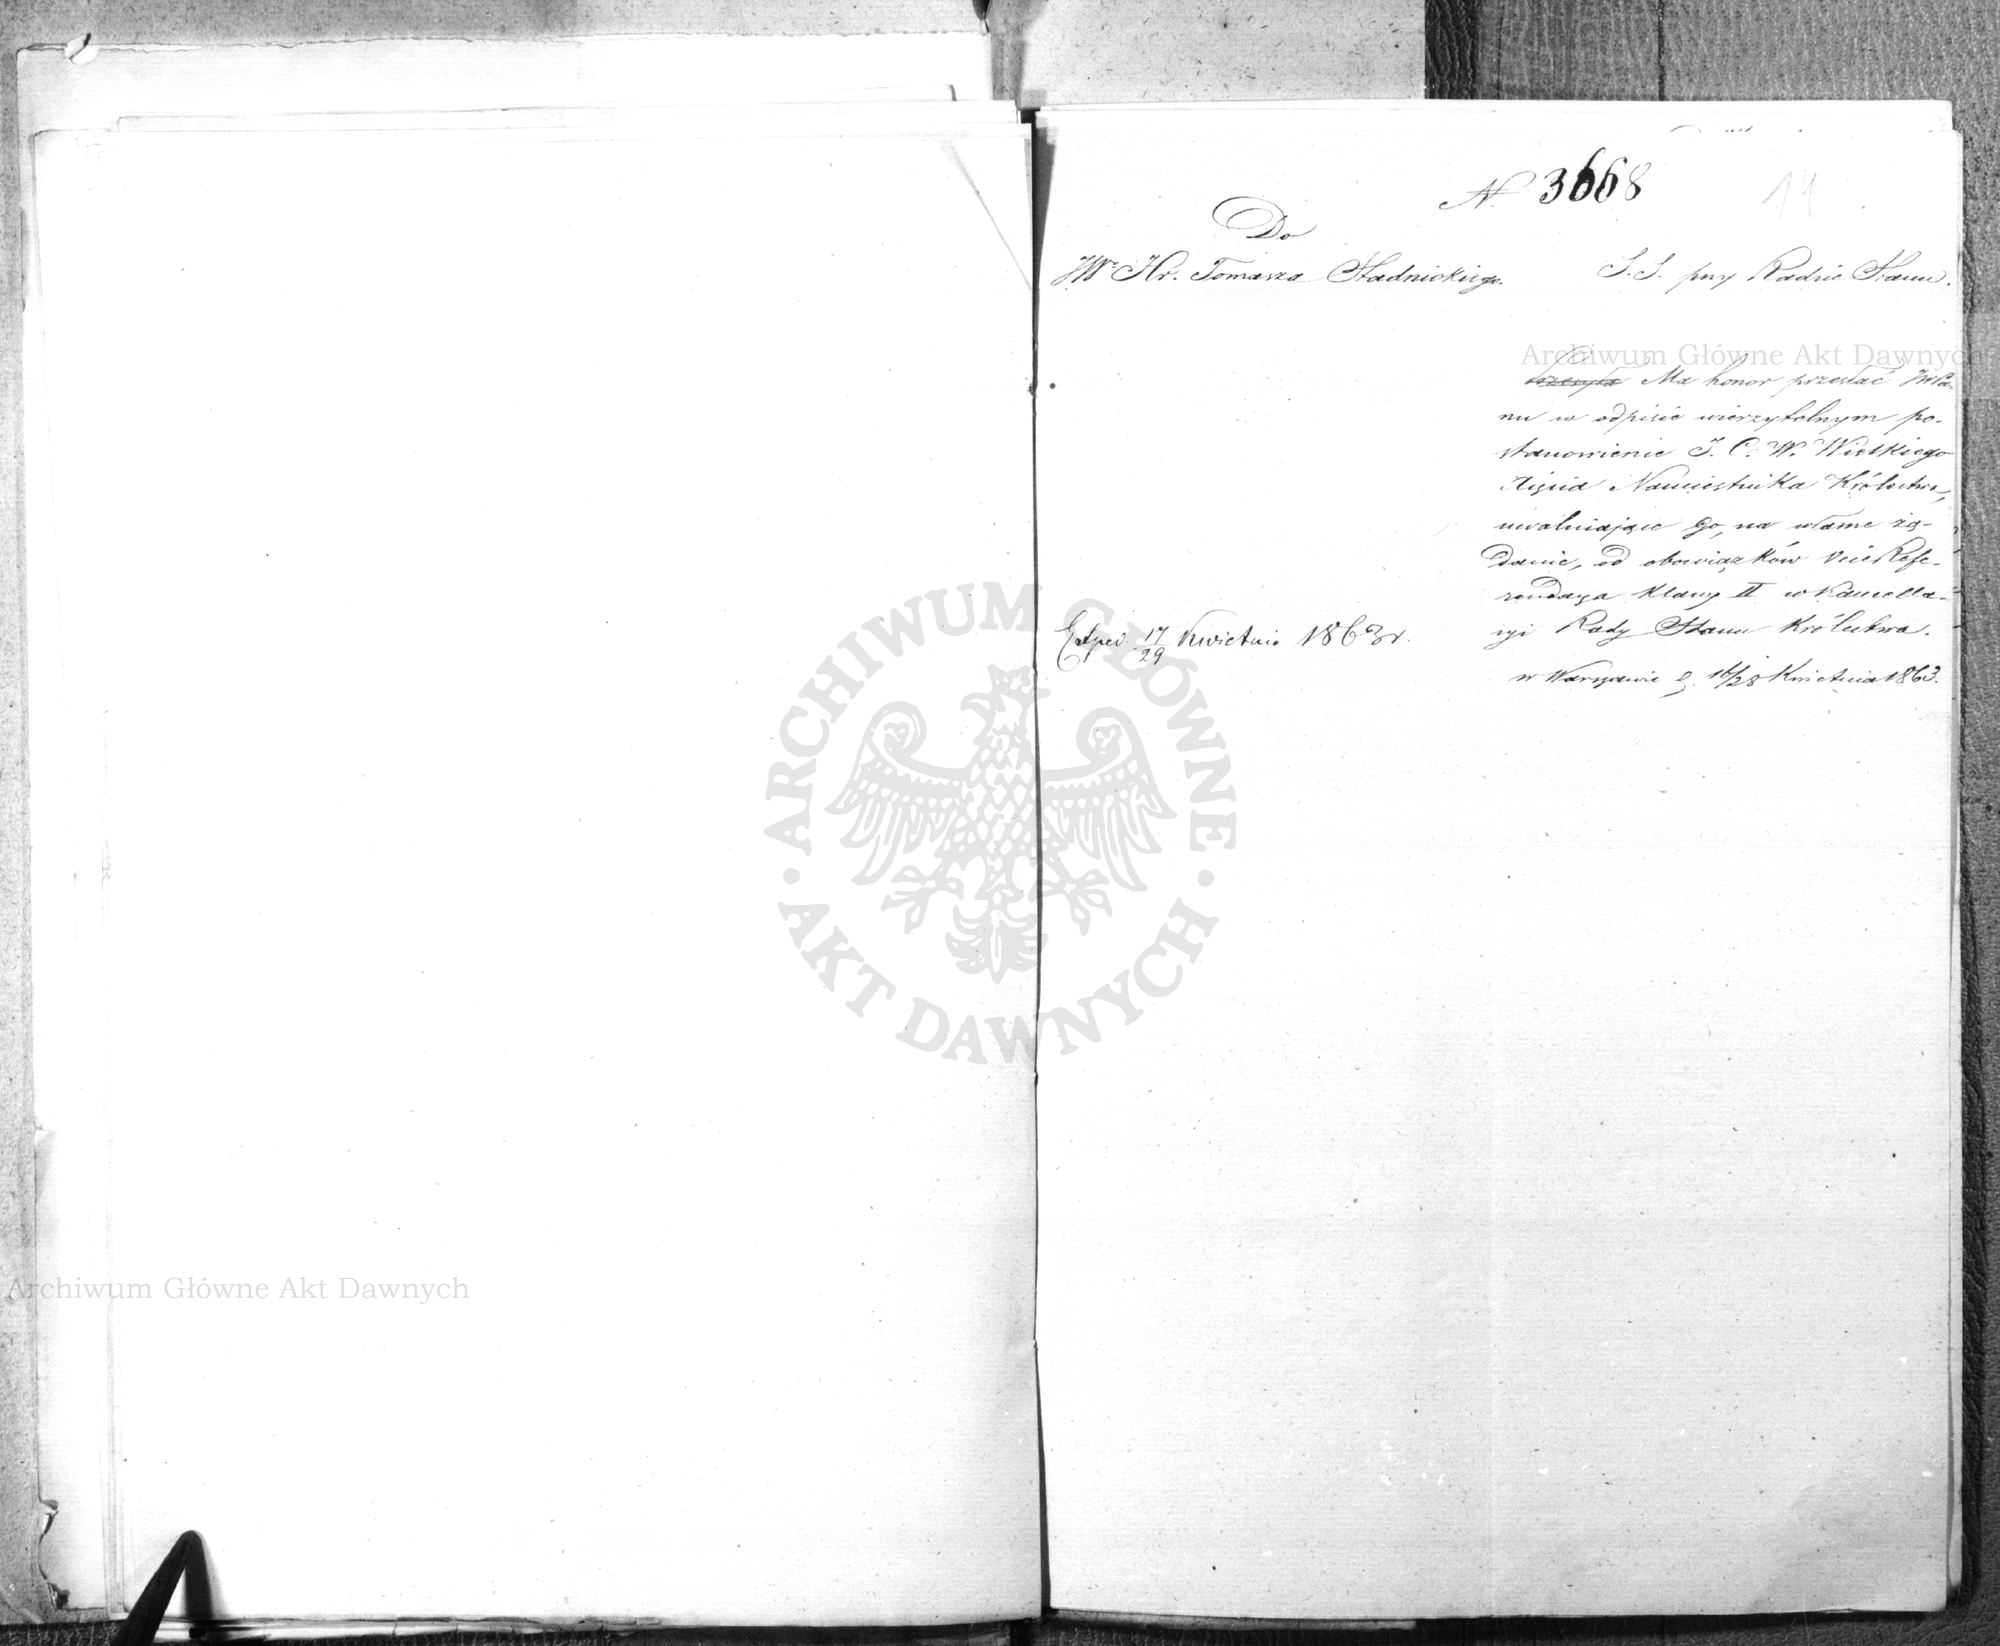 N 3668
14
Do
JW° Hr. Tomasza Stadnickiego.
S. S. przy Radzie Stanu.
Ma honor przesłać JWPa-
nu w odpisie wierzytelnym po-
stanowienie J. C. W. Wielkiego
Xięcia Namiestnika Królestwa,
uwalniające Go, na własne żą-
danie, od obowiązków ViceRefe-
rendarza klassy II w Kancella-
ryi Rady Stanu Królestwa.
w Warszawie d. 16/28 Kwietnia 1863.
Exped. 17/29 Kwietnia 1863 r.
Archiwum Główne Akt Dawnych
ARCHIWUM GŁÓWNE
AKT DAWNYCH
Archiwum Główne Akt Dawnych